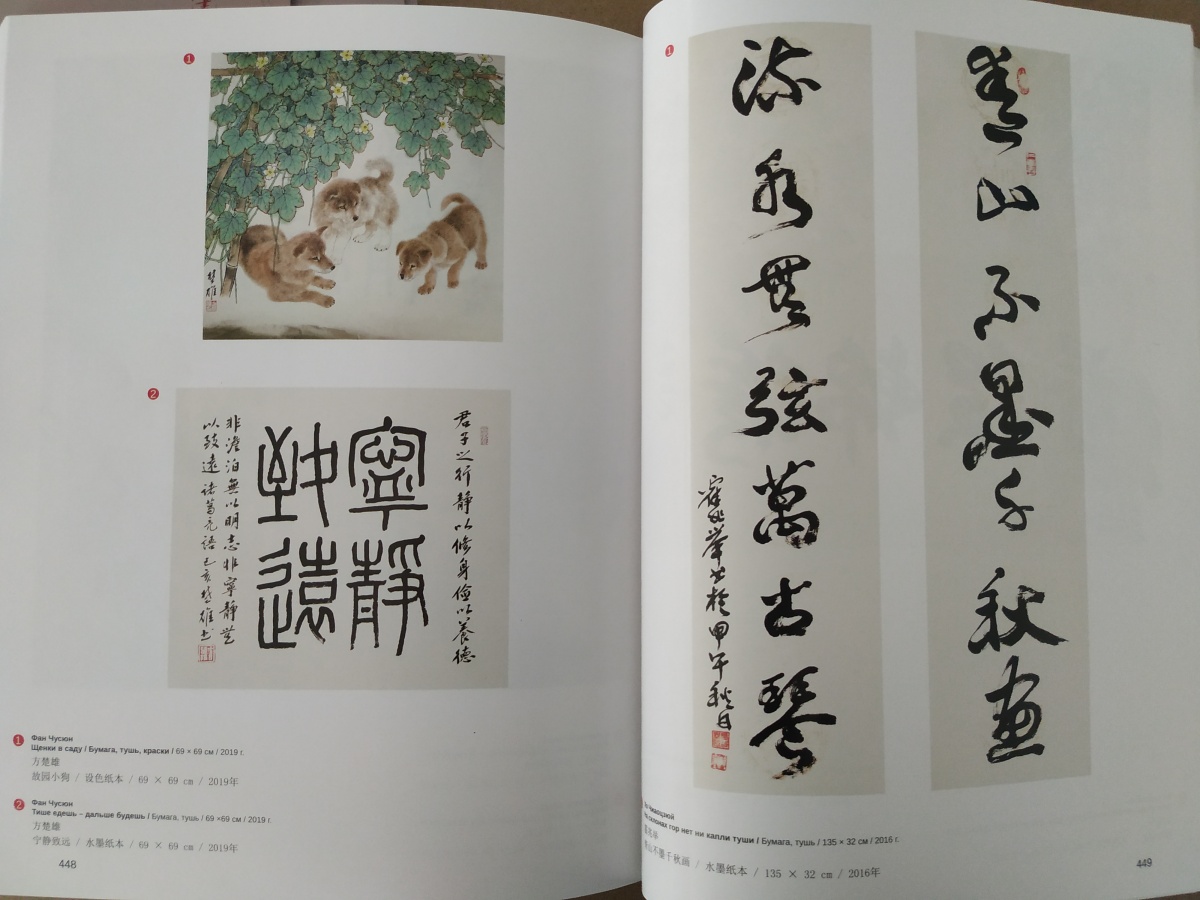 1
楚雄
2
君子之行静以修身儉以養德
寧靜
致遠
非澹泊無以明志非寧静無
以致遠 諸葛亮語己亥楚雄书
1
Фан Чусюн
Щенки в саду / Бумага, тушь, краски / 69 × 69 см / 2019 г.
方楚雄
故园小狗 / 设色纸本 / 69 × 69 cm / 2019年
2
Фан Чусюн
Тише едешь – дальше будешь / Бумага, тушь / 69 ×69 см / 2019 г.
方楚雄
宁静致远 / 水墨纸本 / 69 × 69 cm / 2019年
448
1
青山不墨千秋畫
流水無弦萬古琴
書於甲午秋日
склонах гор нет ни капли туши / Бумага, тушь / 135 × 32 см / 2016 г.
山不墨千秋画 / 水墨纸本 / 135 × 32 cm / 2016年
449